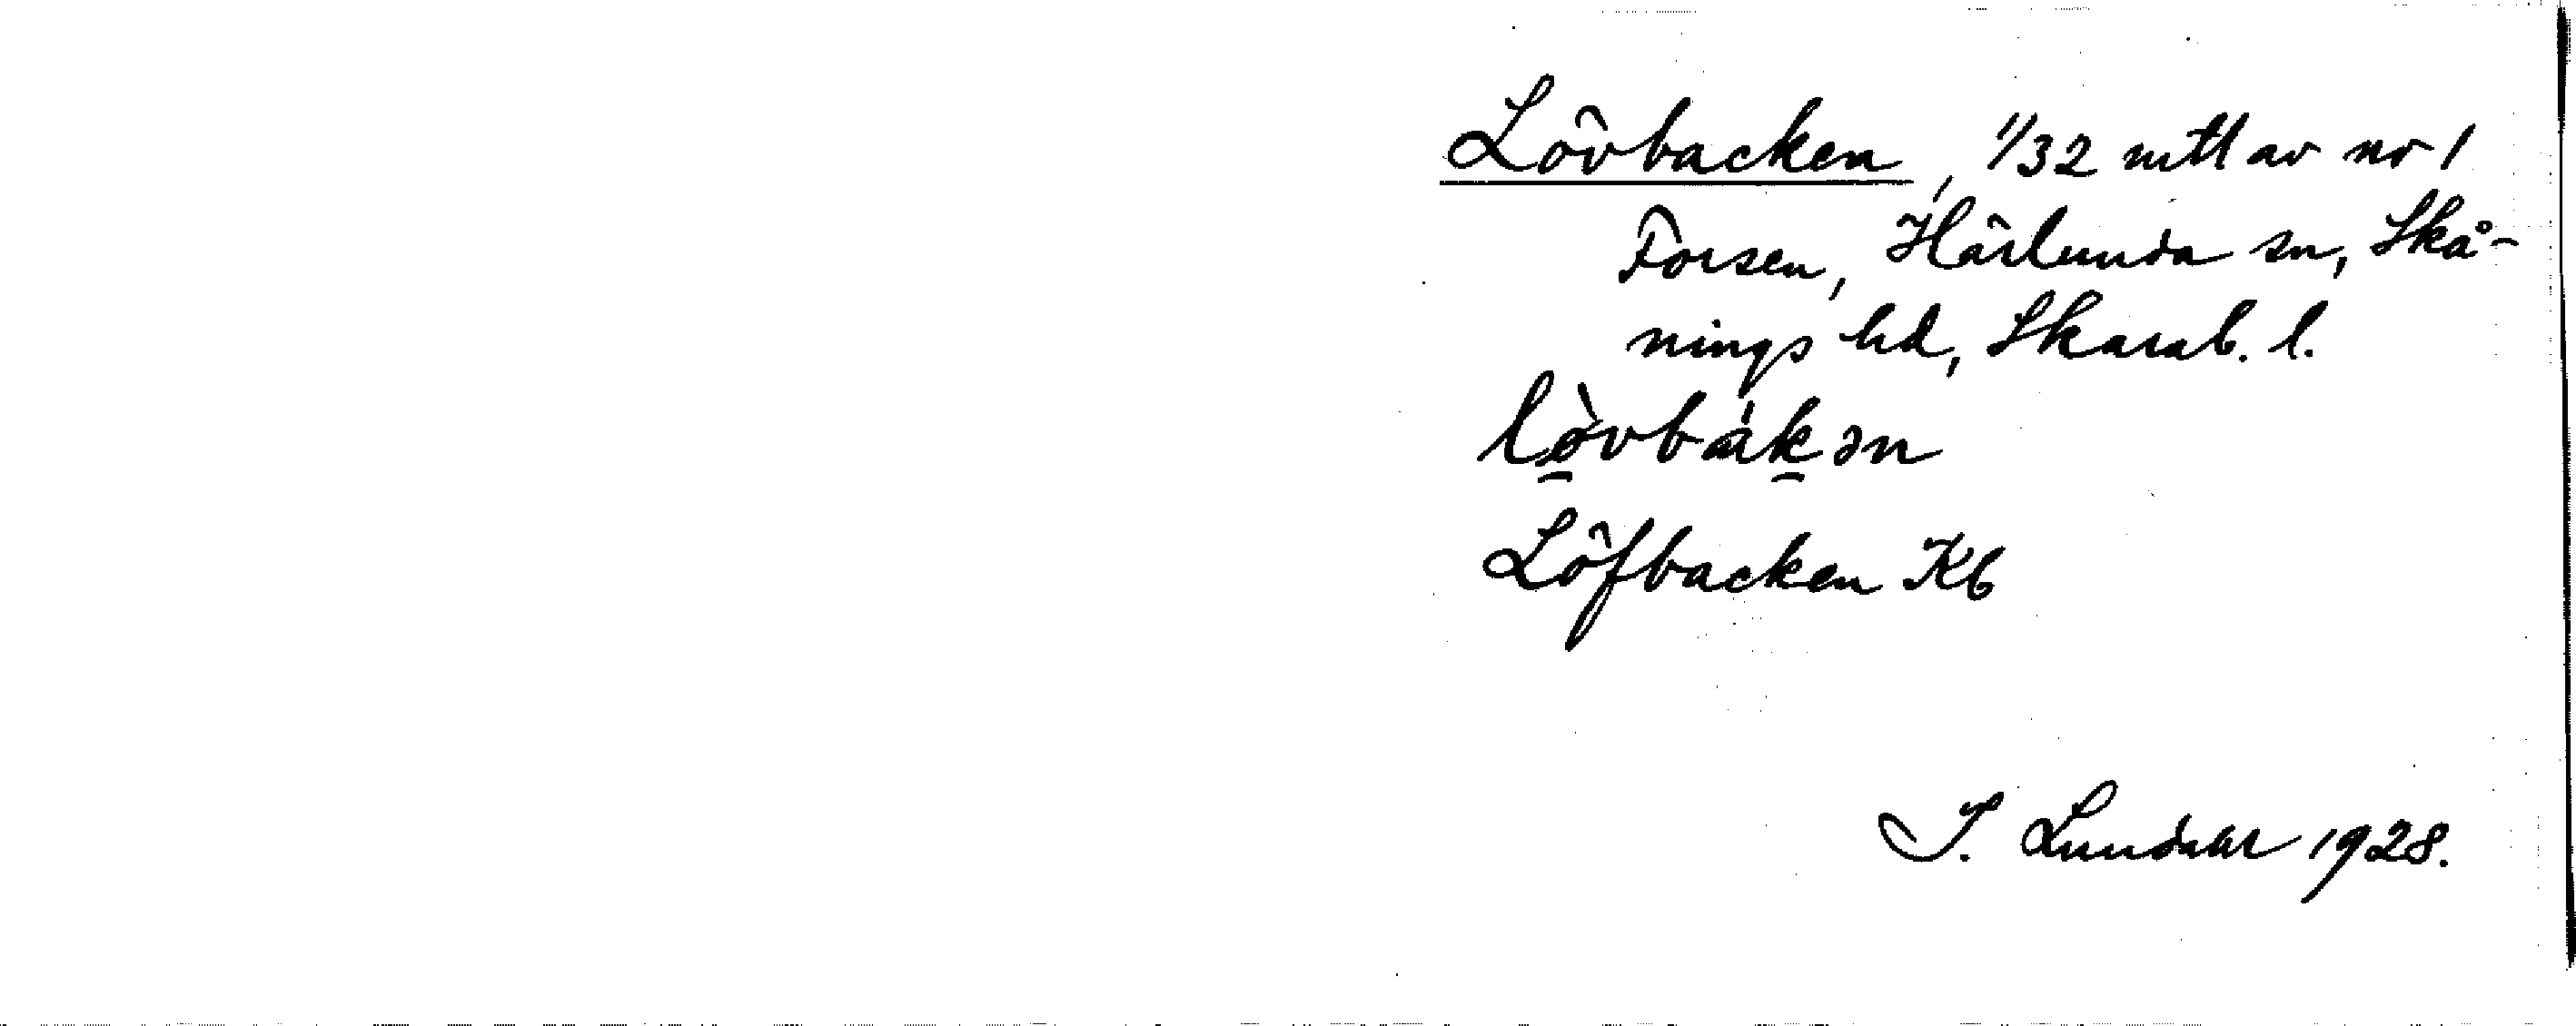 Lövbacken, 1/32 mtl av nr 1
Forsen, Härlunda sn, Skå-
nings hd, Skarab. l.
lø̀vbák̯ən
Löfbacken Kb
I. Lundahl 1928.